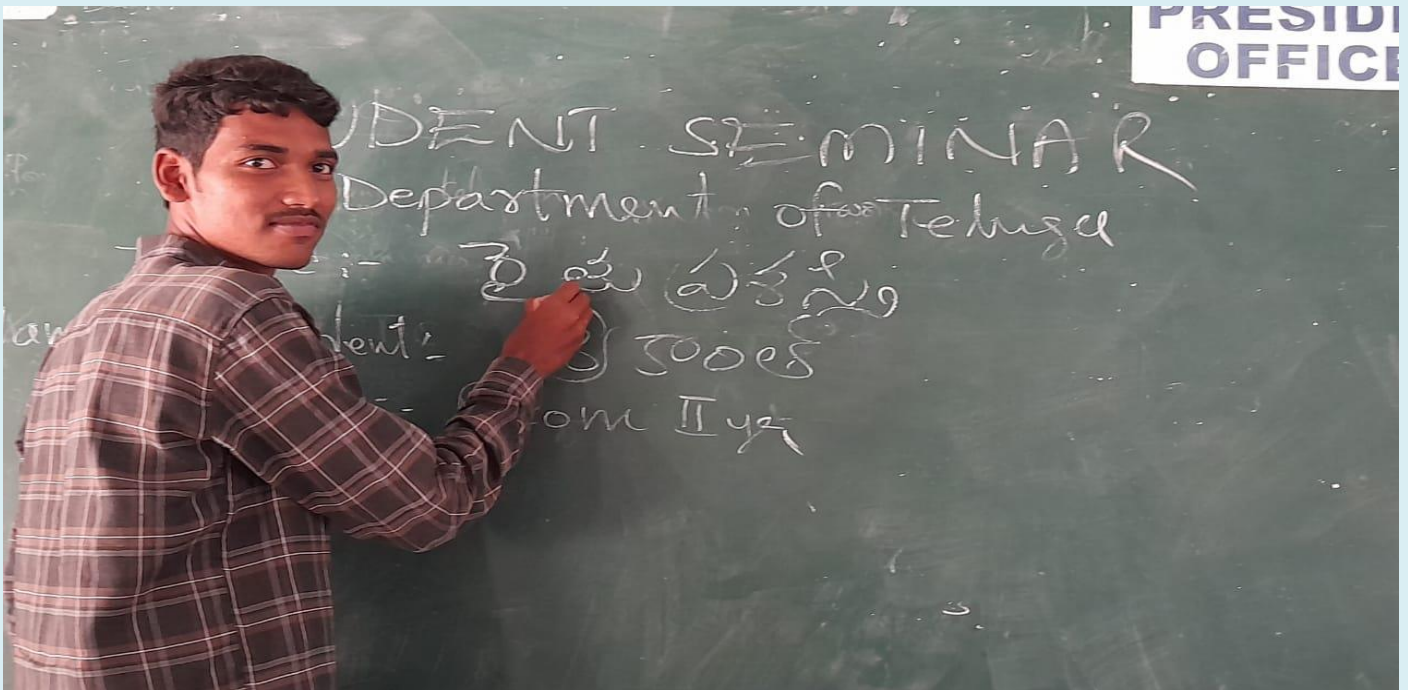 PRESIDI
OFFICE
UDENT SEMINAR
Department of Telugu
:- రైతు ప్రశస్తి
dent :- కాంత్
:- om II yr